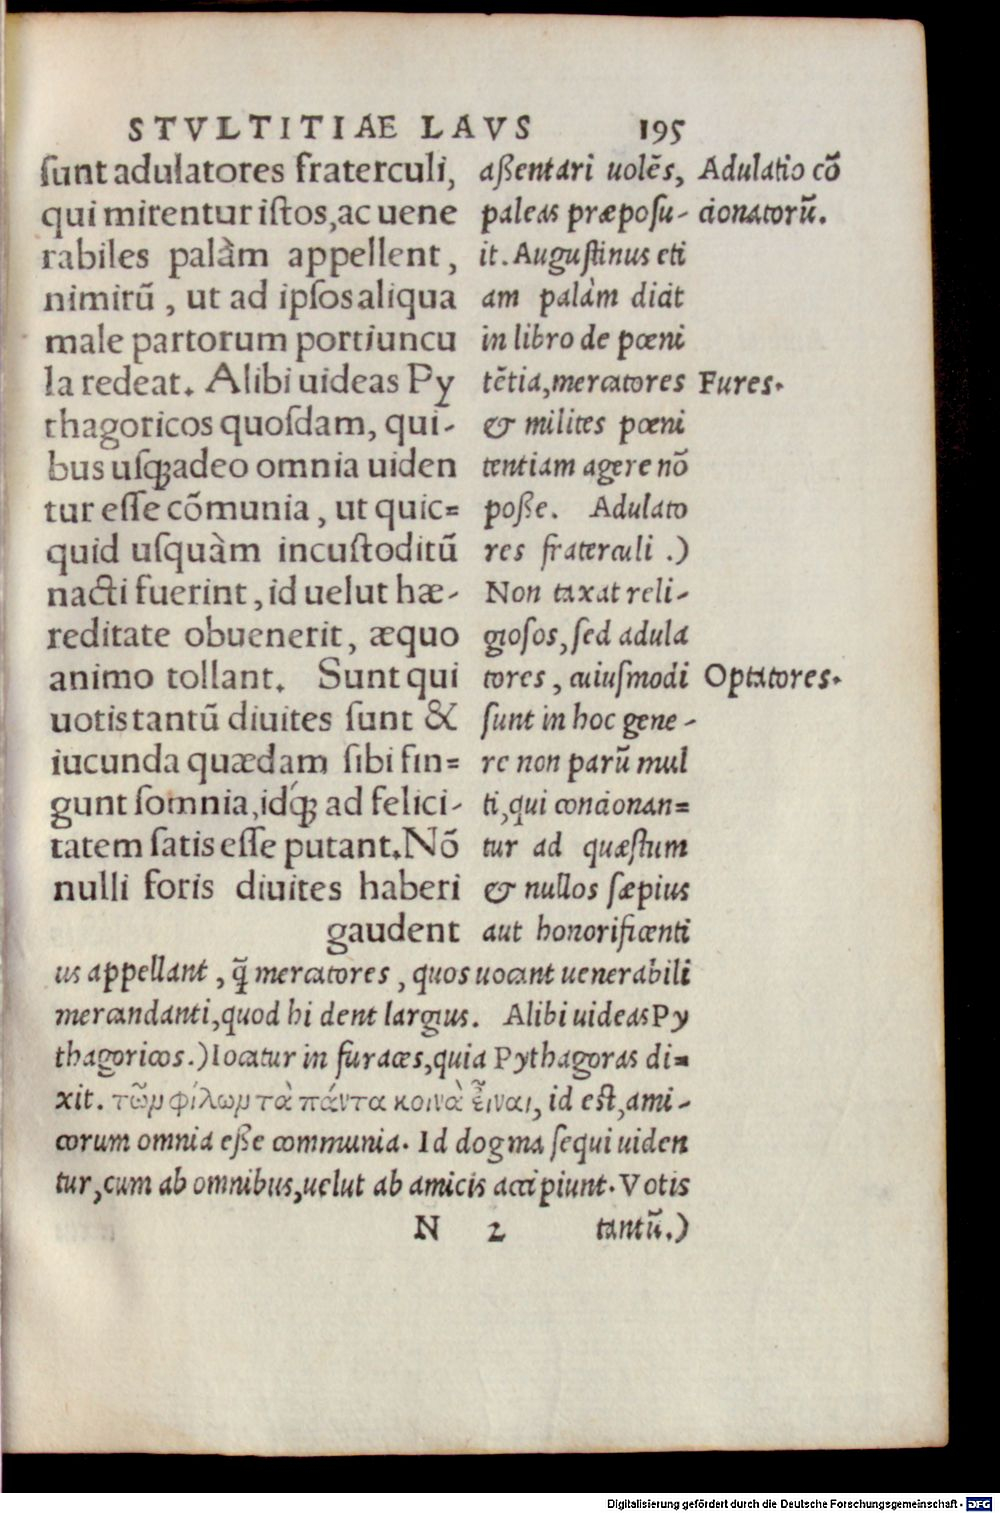 STVLTITIAE LAVS 195
ſunt adulatores fraterculi,
qui mirentur iſtos, ac uene
rabiles palàm appellent,
nimirū, ut ad ipſos aliqua
male partorum portiuncu
la redeat. Alibi uideas Py
thagoricos quoſdam, qui-
bus uſq; adeo omnia uiden
tur eſſe cōmunia, ut quic=
quid uſquàm incuſtoditū
nacti fuerint, id uelut hæ-
reditate obuenerit, æquo
animo tollant. Sunt qui
uotis tantū diuites ſunt &
iucunda quædam ſibi fin=
gunt ſomnia, idq́; ad felici-
tatem ſatis eſſe putant. Nō
nulli foris diuites haberi
gaudent
aßentari uolēs,
paleas præpoſu-
it. Auguſtinus eti
am palàm dicit
in libro de pœni
tētia, mercatores
& milites pœni
tentiam agere nō
poße. Adulato
res fraterculi.)
Non taxat reli-
gioſos, ſed adula
tores, cuiuſmodi
ſunt in hoc gene-
re non parū mul
ti, qui concionan=
tur ad quæſtum
& nullos ſæpius
aut honorificenti
us appellant, q̄ mercatores, quos uocant uenerabili
mercandanti, quod hi dent largius. Alibi uideas Py
thagoricos.) Iocatur in furaces, quia Pythagoras di=
xit. τῶμ φίλωμ τὰ πάντα κοινὰ εἶναι, id eſt, ami-
corum omnia eße communia. Id dogma ſequi uiden
tur, cum ab omnibus, uelut ab amicis accipiunt. Votis
N 2 tantū.)
Adulatio cō
cionatorū.
Fures.
Optatores.
Digitalisierung gefördert durch die Deutsche Forschungsgemeinschaft - DFG